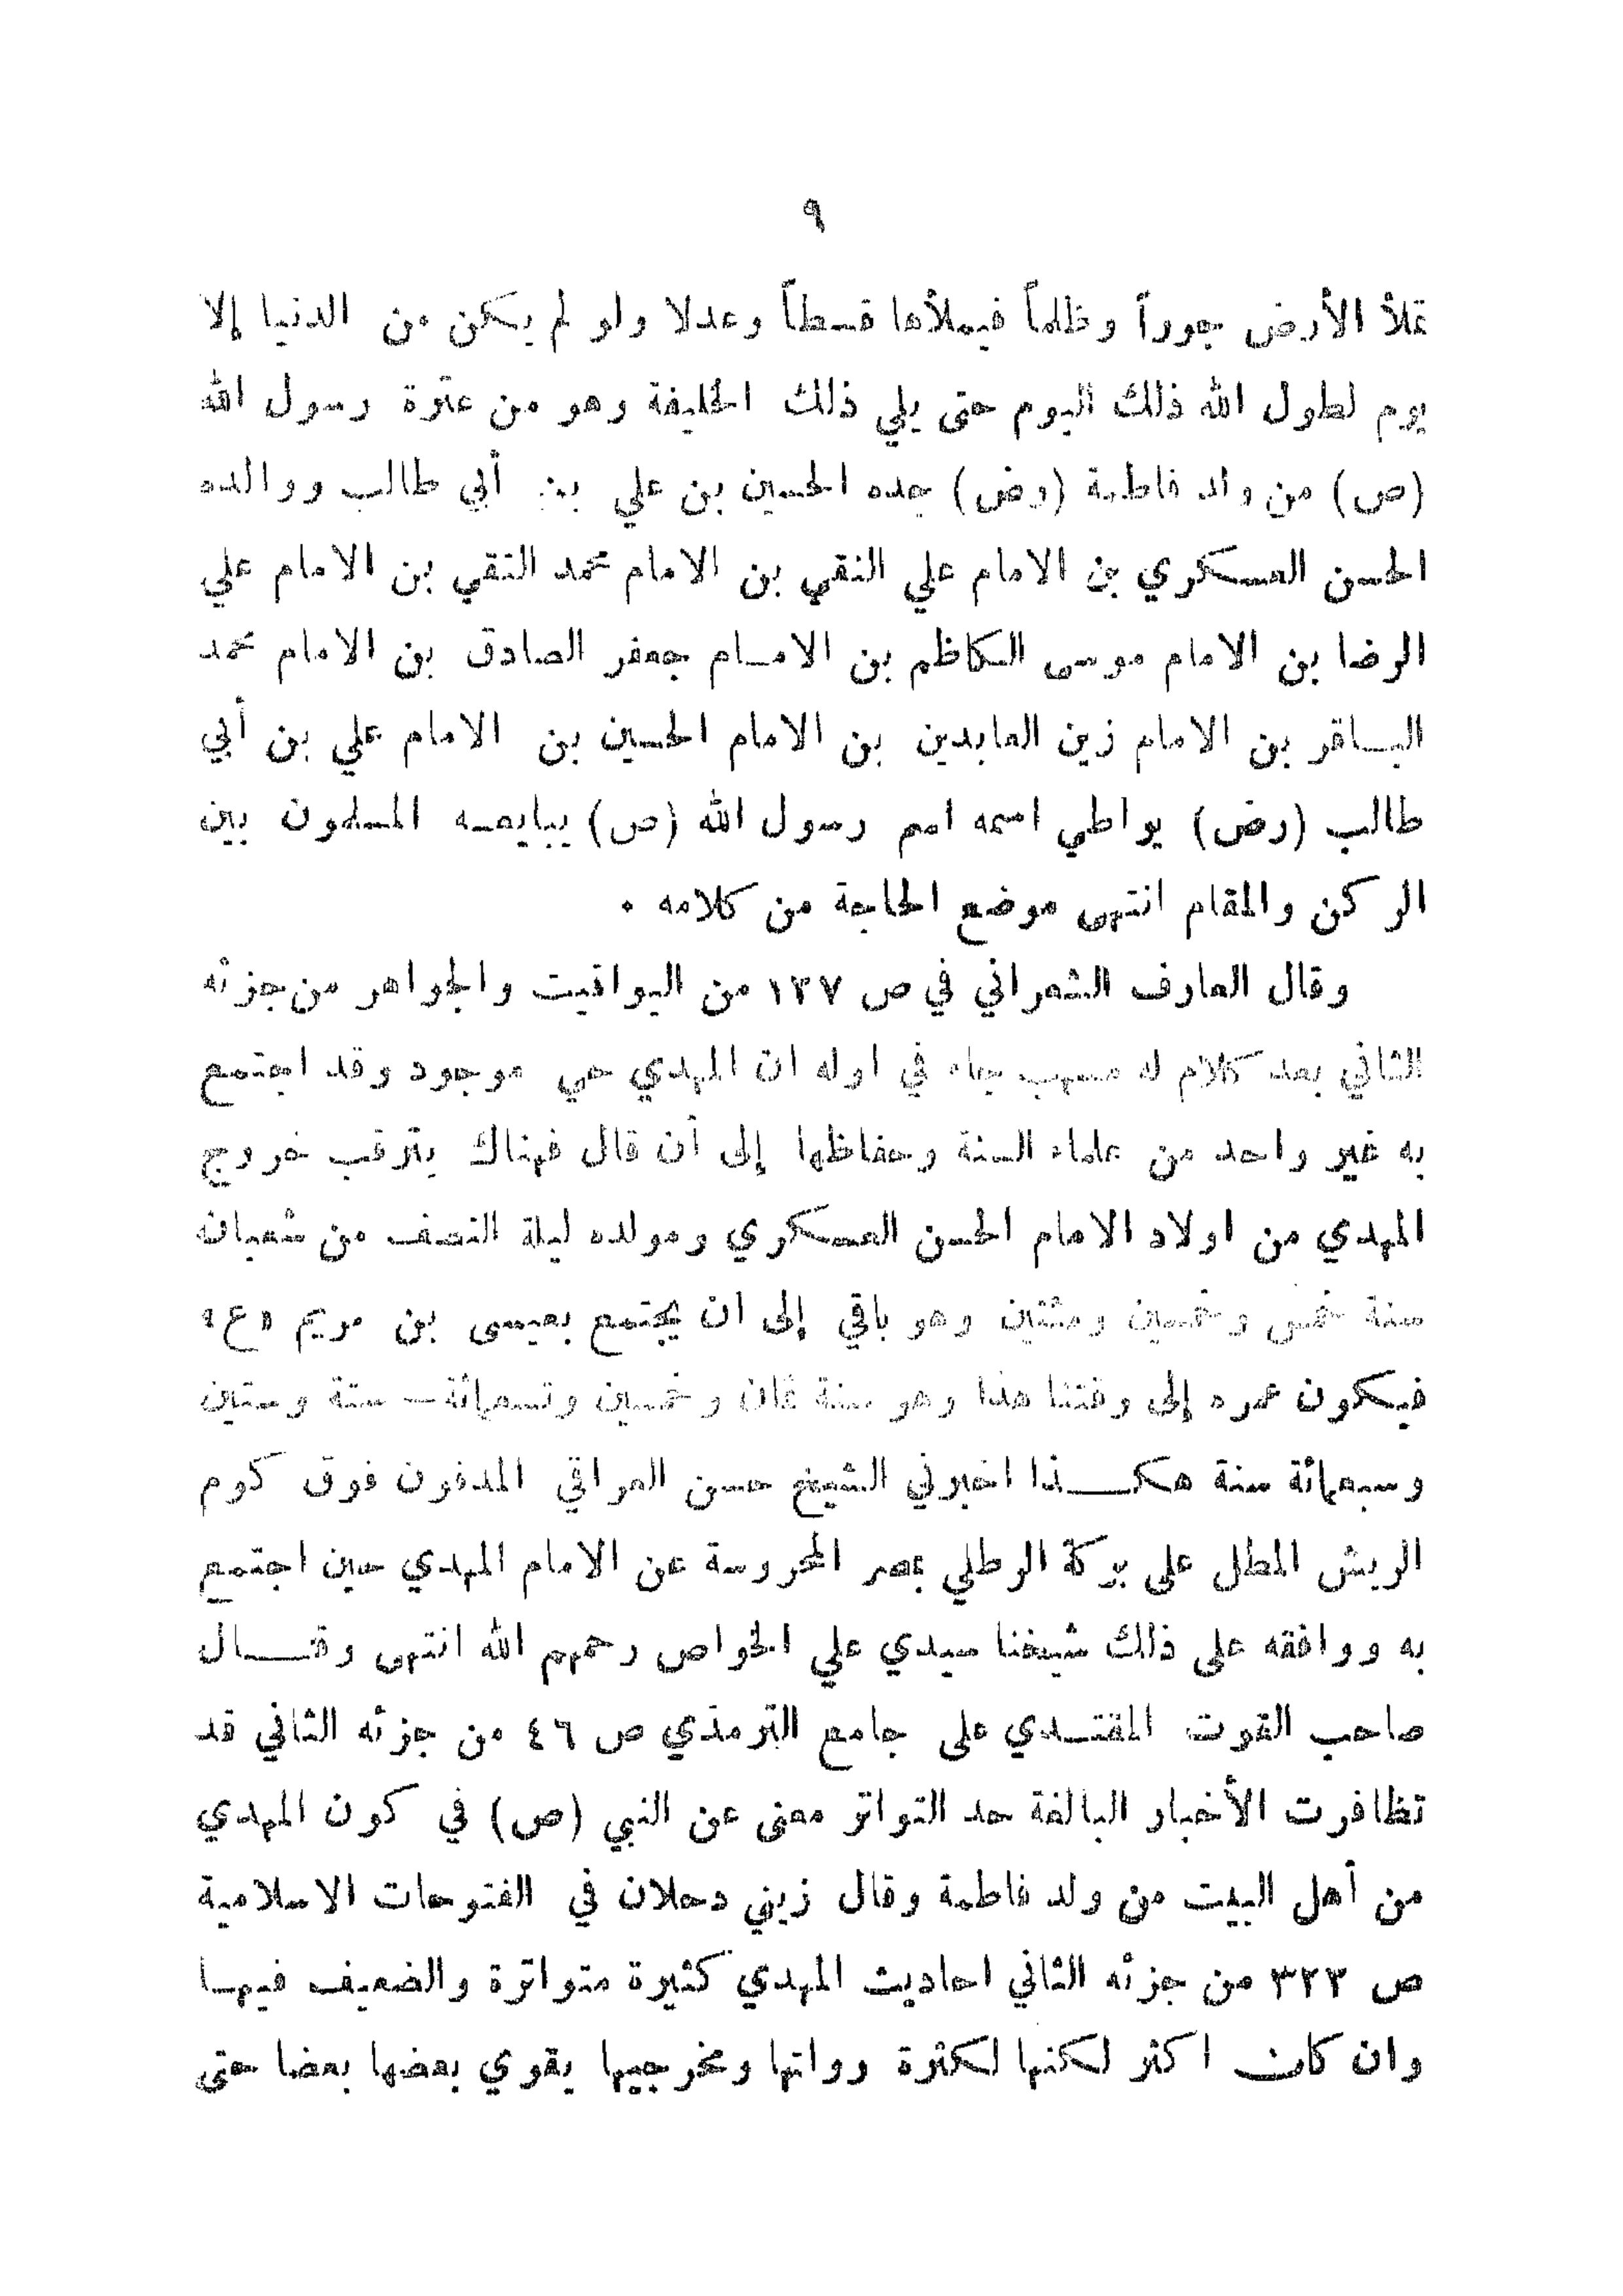 ٩
تملأ الأرض جوراً وظلماً فيملأها قسطاً وعدلا ولو لم يكن من الدنيا إلا
يوم لطول الله ذلك اليوم حتى يلي ذلك الخليفة وهو من عترة رسول الله
(ص) من ولد فاطمة (رض) جده الحسين بن علي بن أبي طالب ووالده
الحسن العسكري بن الامام علي النقي بن الامام محمد التقي بن الامام علي
الرضا بن الامام موسى الكاظم بن الامام جعفر الصادق بن الامام محمد
الباقر بن الامام زين العابدين بن الامام الحسين بن الامام علي بن أبي
طالب (رض) يواطي اسمه اسم رسول الله (ص) يبايعه المسلمون بين
الركن والمقام انتهى موضع الحاجة من كلامه .
وقال العارف الشعراني في ص ١٣٧ من اليواقيت والجواهر من جزئه
الثاني بعد كلام له مسهب جاء في اوله ان المهدي حي موجود وقد اجتمع
به غير واحد من علماء السنة وحفاظها إلى أن قال فهناك يترقب خروج
المهدي من اولاد الامام الحسن العسكري ومولده ليلة النصف من شعبان
سنة خمس وخمسين ومئتين وهو باقي إلى ان يجتمع بعيسى بن مريم «ع»
فيكون عمره إلى وقتنا هذا وهو سنة ثمان وخمسين وتسعمائة – ستة وستين
وسبعمائة سنة هكذا اخبرني الشيخ حسن العراقي المدفون فوق كوم
الريش المطل على بركة الرطلي بمصر المحروسة عن الامام المهدي حين اجتمع
به ووافقه على ذلك شيخنا سيدي علي الخواص رحمهم الله انتهى وقال
صاحب القوت المقتدي على جامع الترمذي ص ٤٦ من جزئه الثاني قد
تظافرت الأخبار البالغة حد التواتر معنى عن النبي (ص) في كون المهدي
من أهل البيت من ولد فاطمة وقال زيني دحلان في الفتوحات الاسلامية
ص ٣٢٣ من جزئه الثاني احاديث المهدي كثيرة متواترة والضعيف فيها
وان كان اكثر لكنها لكثرة رواتها ومخرجيها يقوي بعضها بعضا حتى